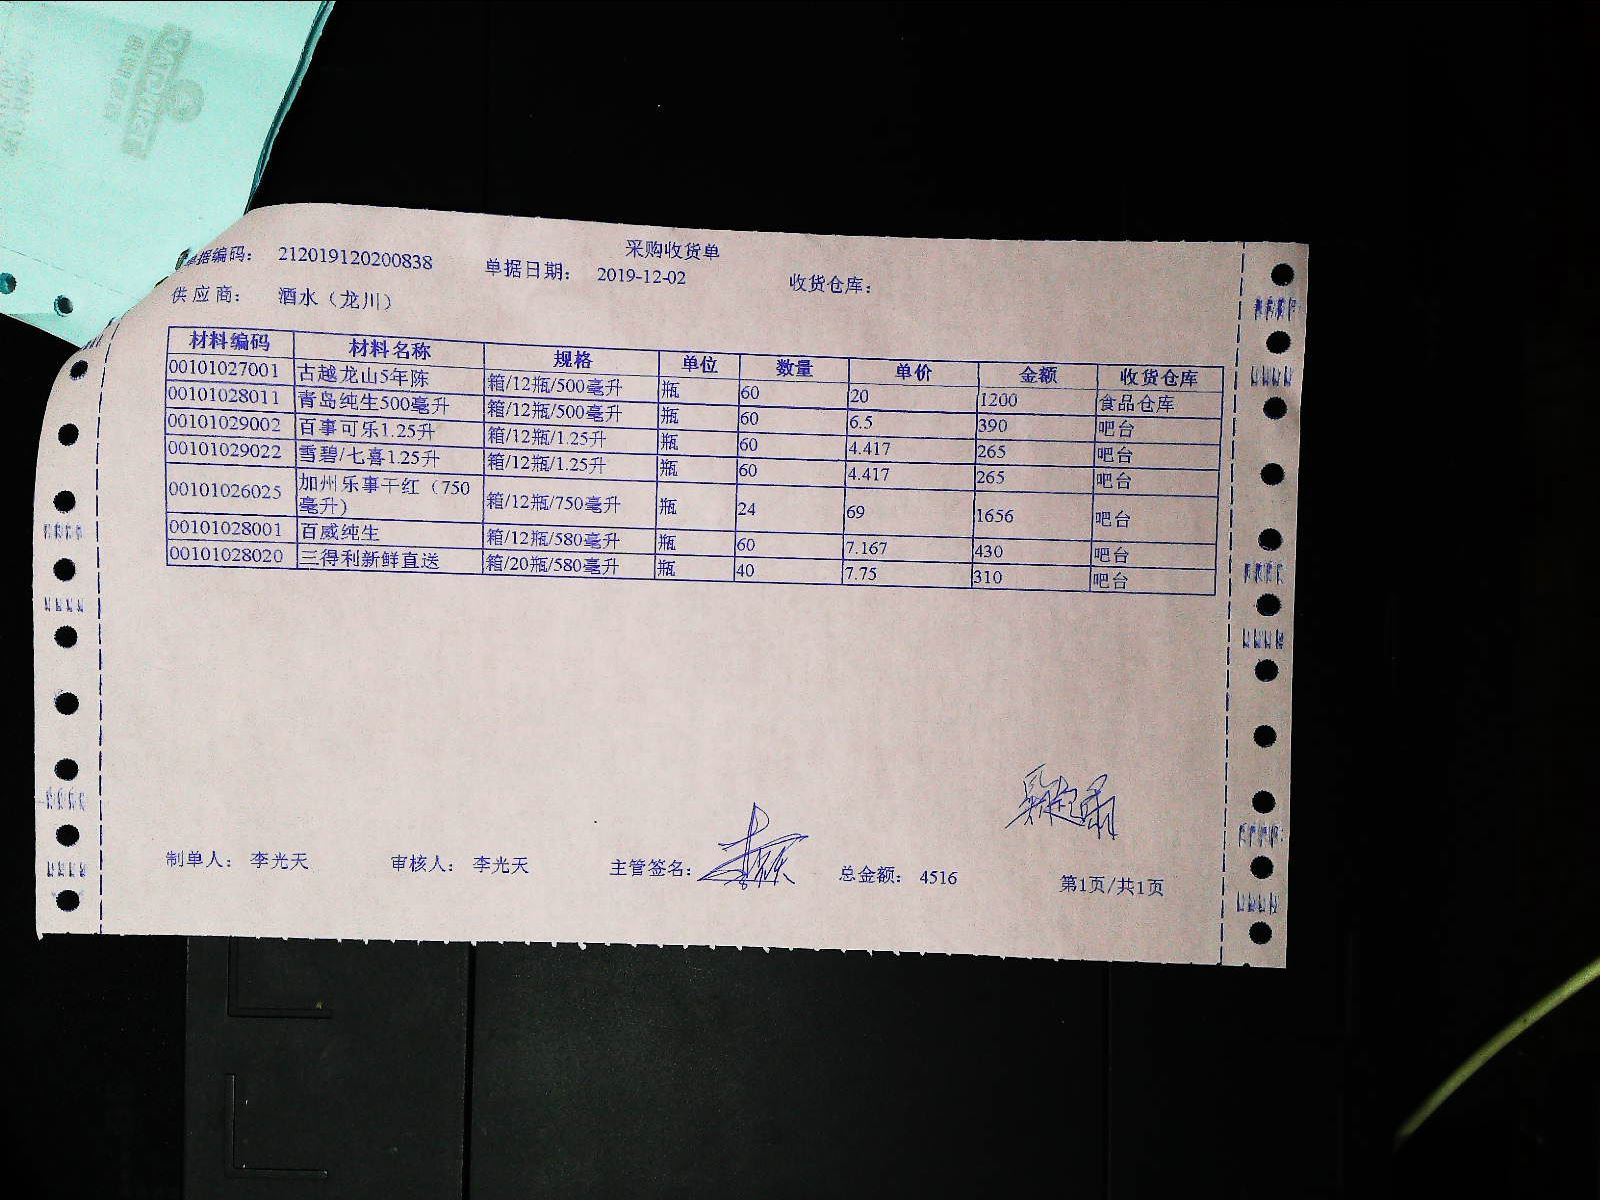 采购收货单
单据编码： 212019120200838 单据日期： 2019-12-02 收货仓库：
供应商： 酒水（龙川）
材料编码 材料名称 规格 单位 数量 单价 金额 收货仓库
00101027001 古越龙山5年陈 箱/12瓶/500毫升 瓶 60 20 1200 食品仓库
00101028011 青岛纯生500毫升 箱/12瓶/500毫升 瓶 60 6.5 390 吧台
00101029002 百事可乐1.25升 箱/12瓶/1.25升 瓶 60 4.417 265 吧台
00101029022 雪碧/七喜1.25升 箱/12瓶/1.25升 瓶 60 4.417 265 吧台
00101026025 加州乐事干红（750毫升） 箱/12瓶/750毫升 瓶 24 69 1656 吧台
00101028001 百威纯生 箱/12瓶/580毫升 瓶 60 7.167 430 吧台
00101028020 三得利新鲜直送 箱/20瓶/580毫升 瓶 40 7.75 310 吧台
制单人： 李光天 审核人： 李光天 主管签名： 总金额： 4516 第1页/共1页